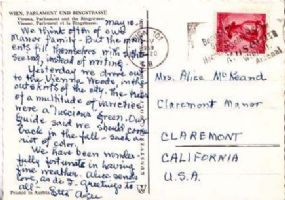 WIEN, PARLAMENT UND RINGSTRASSE
Vienna, Parliament and the Ringstrasse
Vienne, Parlament et la Ringstrasse
May 10.
We think often of our
Manor family - But the moments
fill themselves with sight-
seeing, instead of writing
Yesterday we drove out
to the Vienna Woods in the
outskirts of the city. The trees
of a multitude of varieties
were a luscious green. Our
Guide said we should come
back in the fall - such a
riot of color.
We have been wonder-
fully fortunate in having
fine weather. Alice sends
love, as do I. Greetings to
all -
Printed in Austria
Mrs. Alice McKeand
Claremont Manor
CLAREMONT
CALIFORNIA
U.S.A.